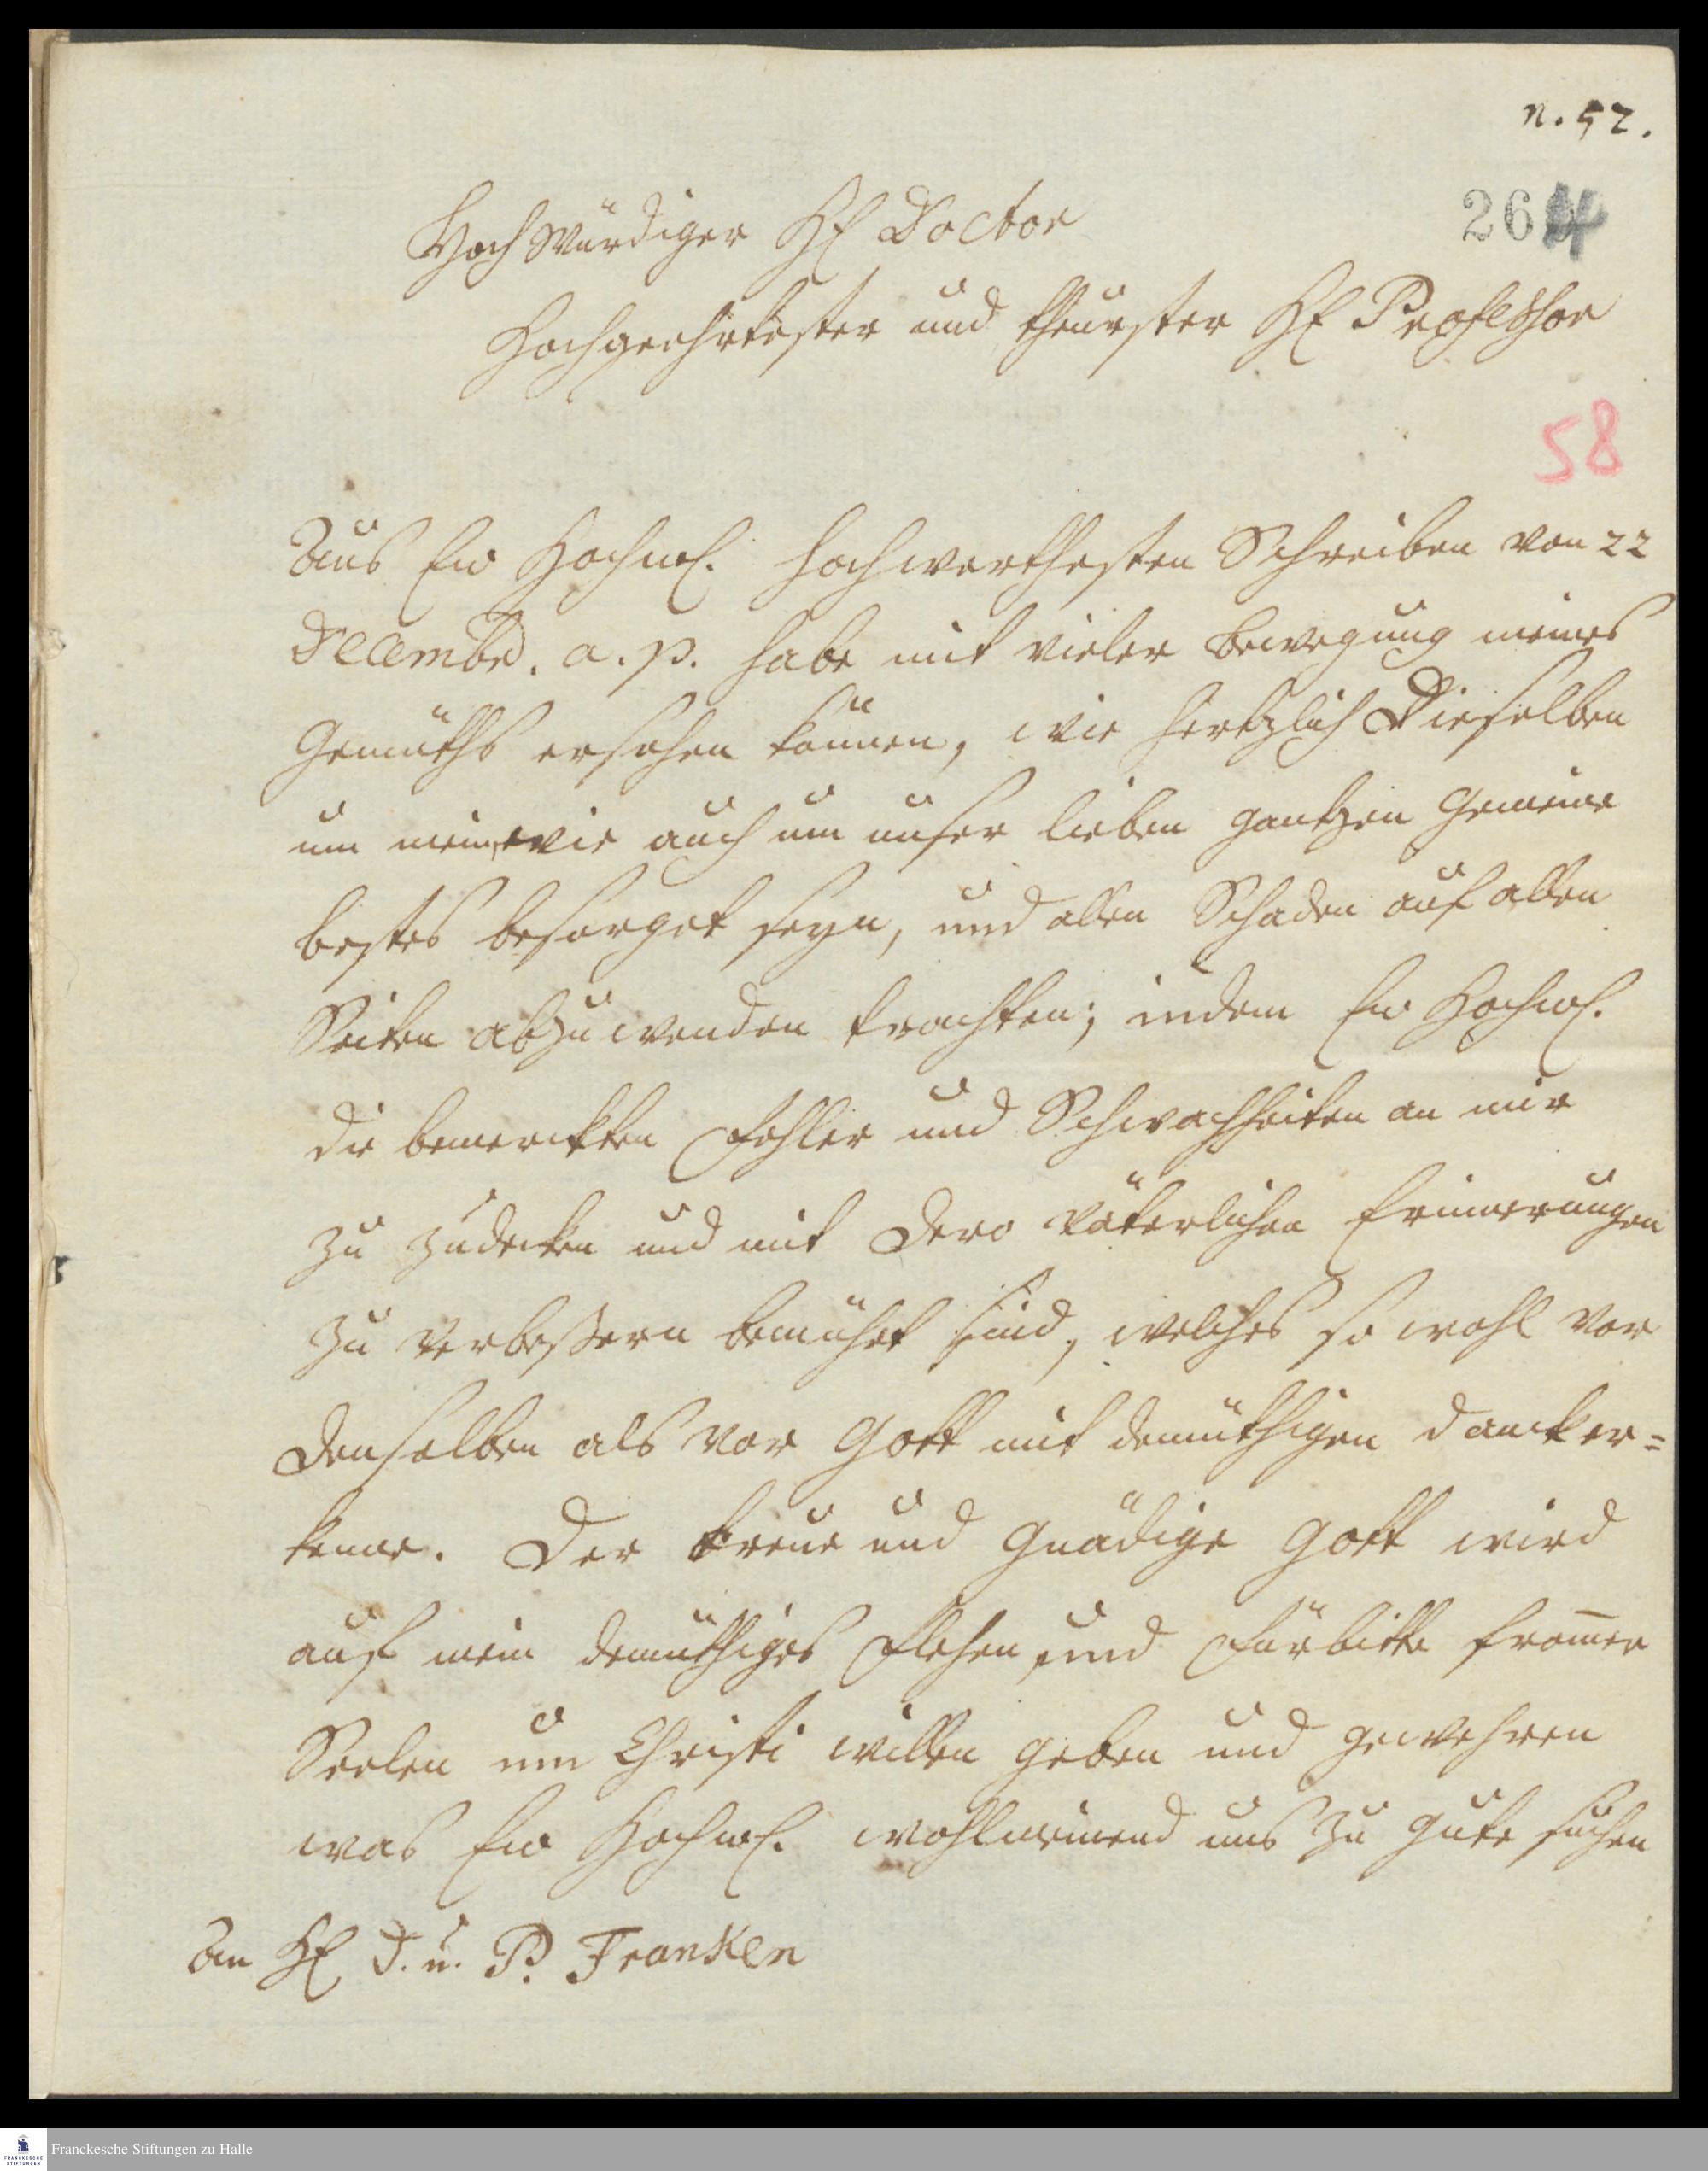 n. 52.
HochWürdiger H Doctor
264
Hochgeehrtester und theurster H Professor
58
Aus Ew Hochw. hochwerthesten Schreiben von 22
Decembr. a. p. habe mit vieler bewegung meines
Gemüths ersehen können, wie hertzlich Dieselben
um mein, wie auch um unser lieben gantzen Gemeine
bestes besorget seyn, und allen Schaden auf allen
Seiten abzuwenden trachten; indem Ew Hochw.
die bemerckten Fehler und Schwachheiten an mir
zu zudecken und mit Dero väterlichen Erinnerungen
zu verbeßern bemühet sind, welches so wohl vor
Denselben als vor Gott mit demüthigen danck er=
kenne. Der treue und Gnädige Gott wird
auf mein demüthiges Flehen, und Fürbitte from̅er
Seelen um Christi willen geben und gewehren
was Ew Hochw. wohlmeinend uns zu gute suchen
An H D. u. P. Franken
Franckesche Stiftungen zu Halle
FRANCKESCHE
STIFTUNGEN